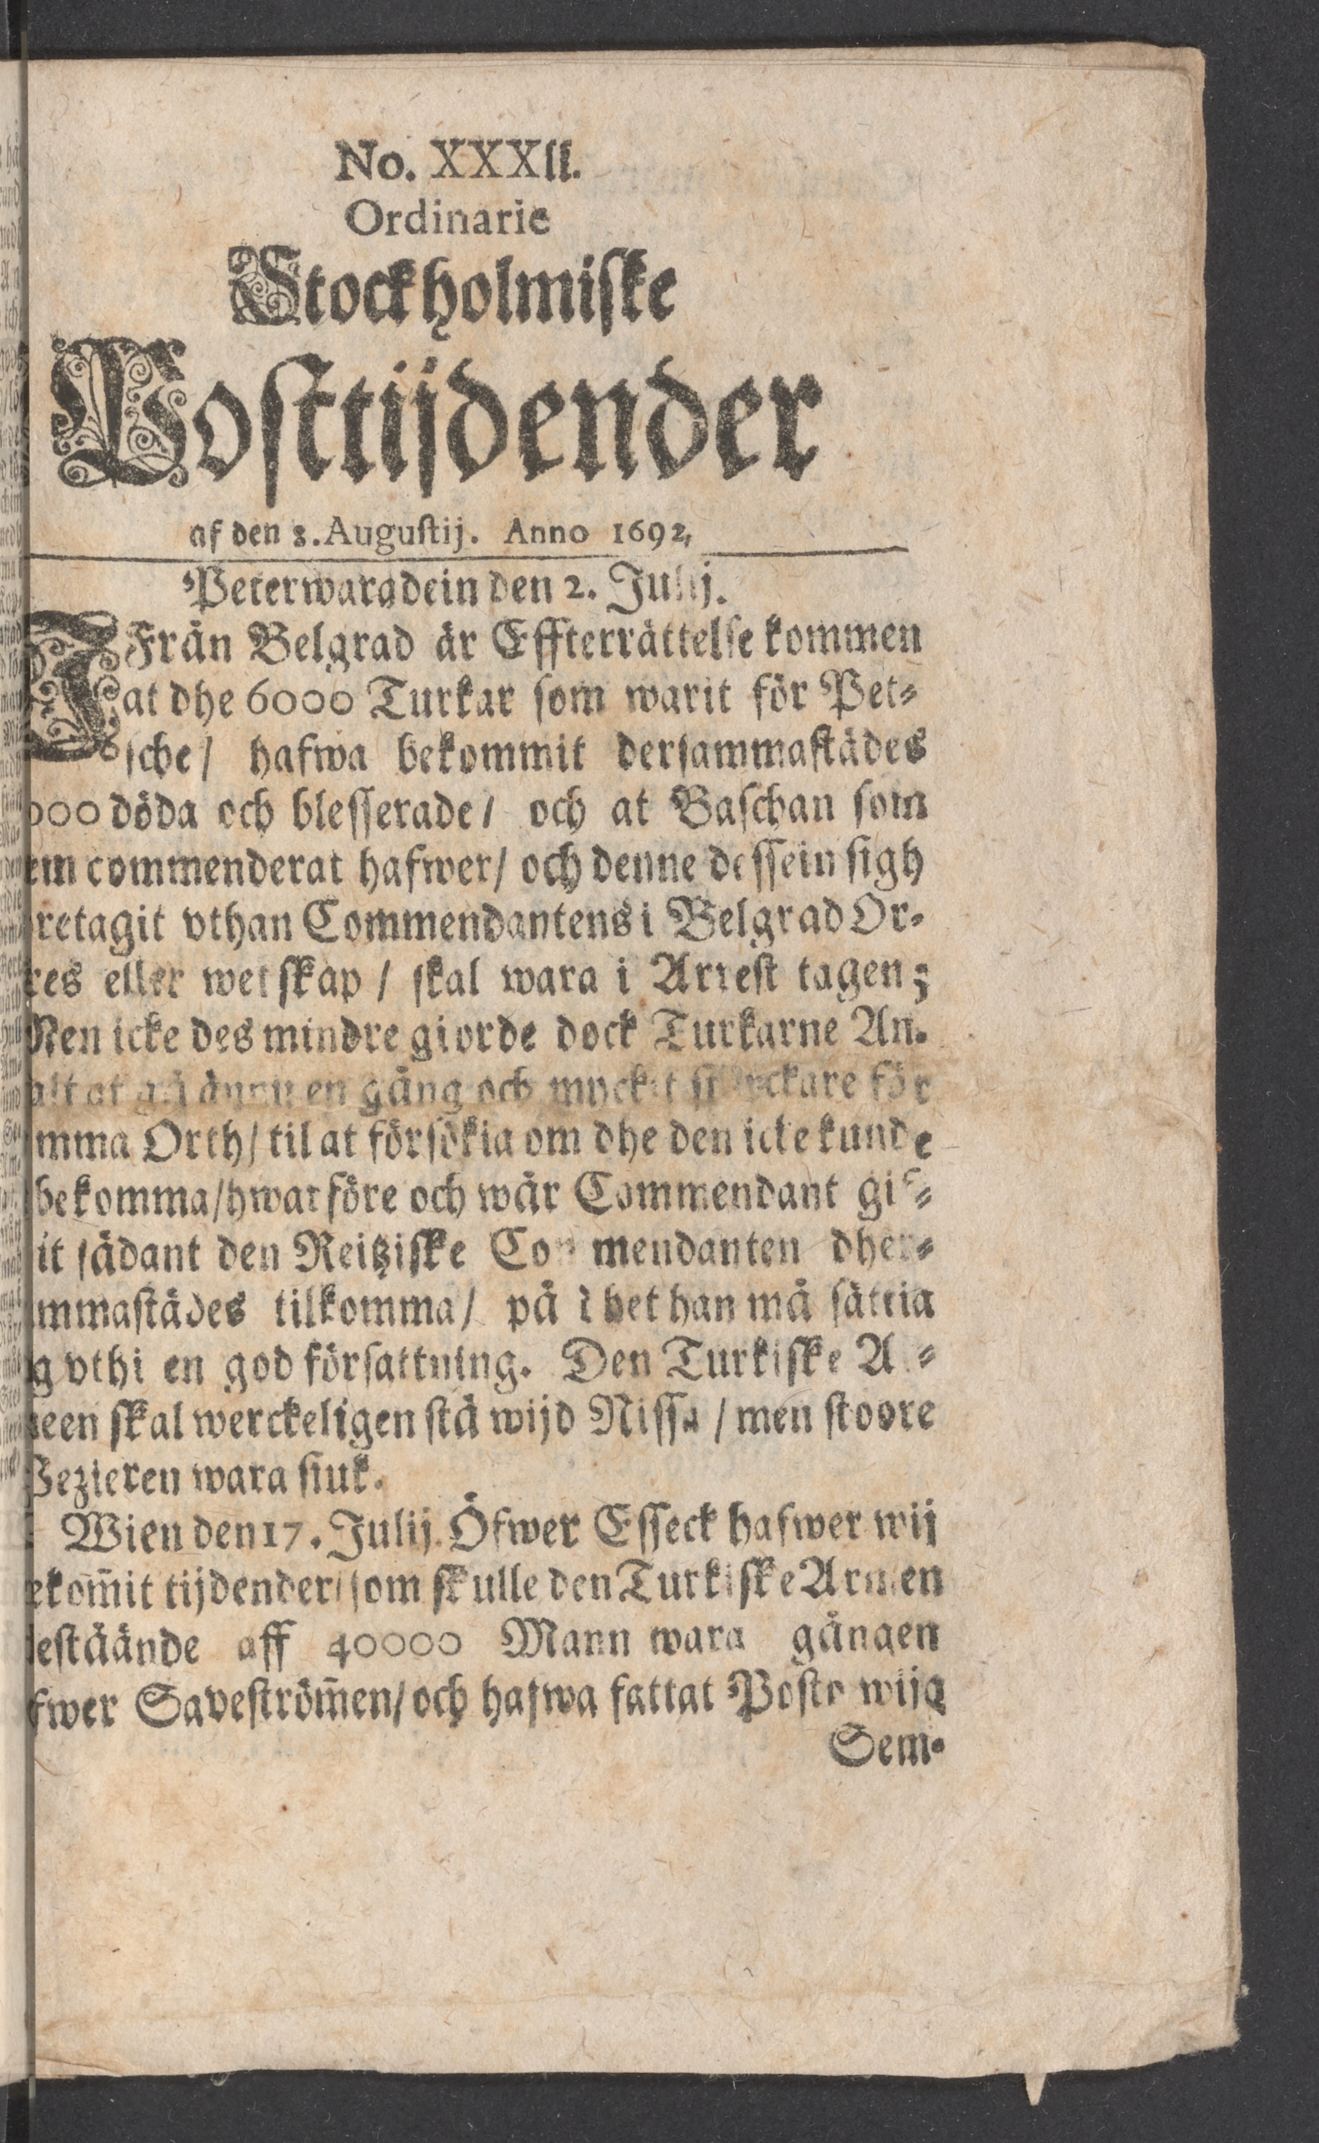 No. XXXII.
Ordinarie
Stockholmiske
Posttijdender
af den 8. Augustij. Anno 1692,
Peterwaradein den 2. Julij.
Från Belgrad är Effterrättelse kommen
at dhe 6000 Turkar som warit för Pet-
sche/ hafwa bekommit dersammastädes
000 döda och blesserade/ och at Baschan som
em commenderat hafwer/ och denne dessein sigh
retagit vthan Commendantens i Belgrad Or-
res eller wetskap/ skal wara i Arrest tagen;
Men icke des mindre giorde dock Turkarne An-
alt at gå ännu en gång och mycket för
mma Orth/ til at försökia om dhe den icke kunde
bekomma/ hwarföre och wår Commendant gif-
it sådant den Reitziske Commendanten dher-
mmastädes tilkomma/ på dhet han må sättia
g vthi en god försattning. Den Turkiske A-
meen skal werckeligen stå wijd Nissa/ men stoore
Vezieren wara siuk.
Wien den 17. Julij. Öfwer Esseck hafwer wij
ekom̃it tijdender/ som skulle den Turkiske Armen
estäände aff 40000 Mann wara gången
fwer Saveström̃en/ och hafwa fattat Posto wijd
Sem-